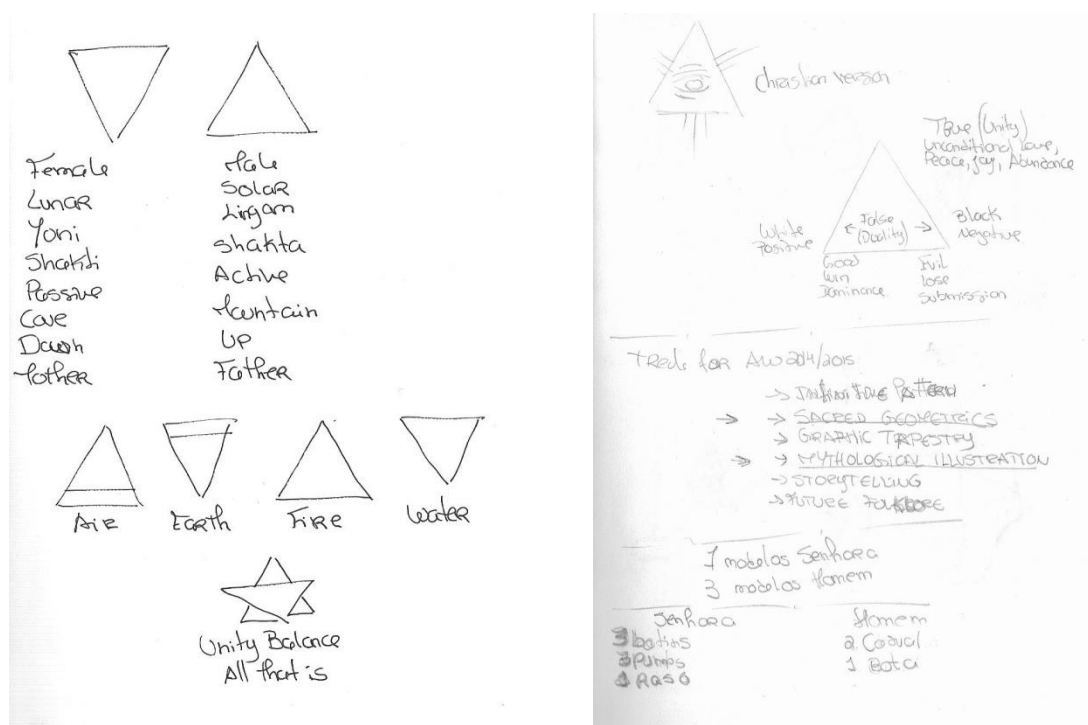 Female
Lunar
Yoni
Shakti
Passive
Cave
Down
Mother
Male
Solar
Lingam
Shakta
Active
Mountain
Up
Father
Air
Earth
Fire
Water
Unity Balance
All that is
Christian version
True (Unity)
Unconditional Love,
Peace, Joy, Abundance
White
Positive
False
(Duality)
Black
Negative
Good
Win
Dominance
Evil
Lose
Submission
for AW 2014/2015
→ PATTERN
→ → SACRED GEOMETRICS
→ GRAPHIC TAPESTRY
→ → MYTHOLOGICAL ILLUSTRATION
→ STORYTELLING
→ FUTURE FOLKLORE
7 modelos Senhora
3 modelos Homem
Senhora
3 botins
3 Pumps
1 Raso
Homem
2 Casual
1 Bota